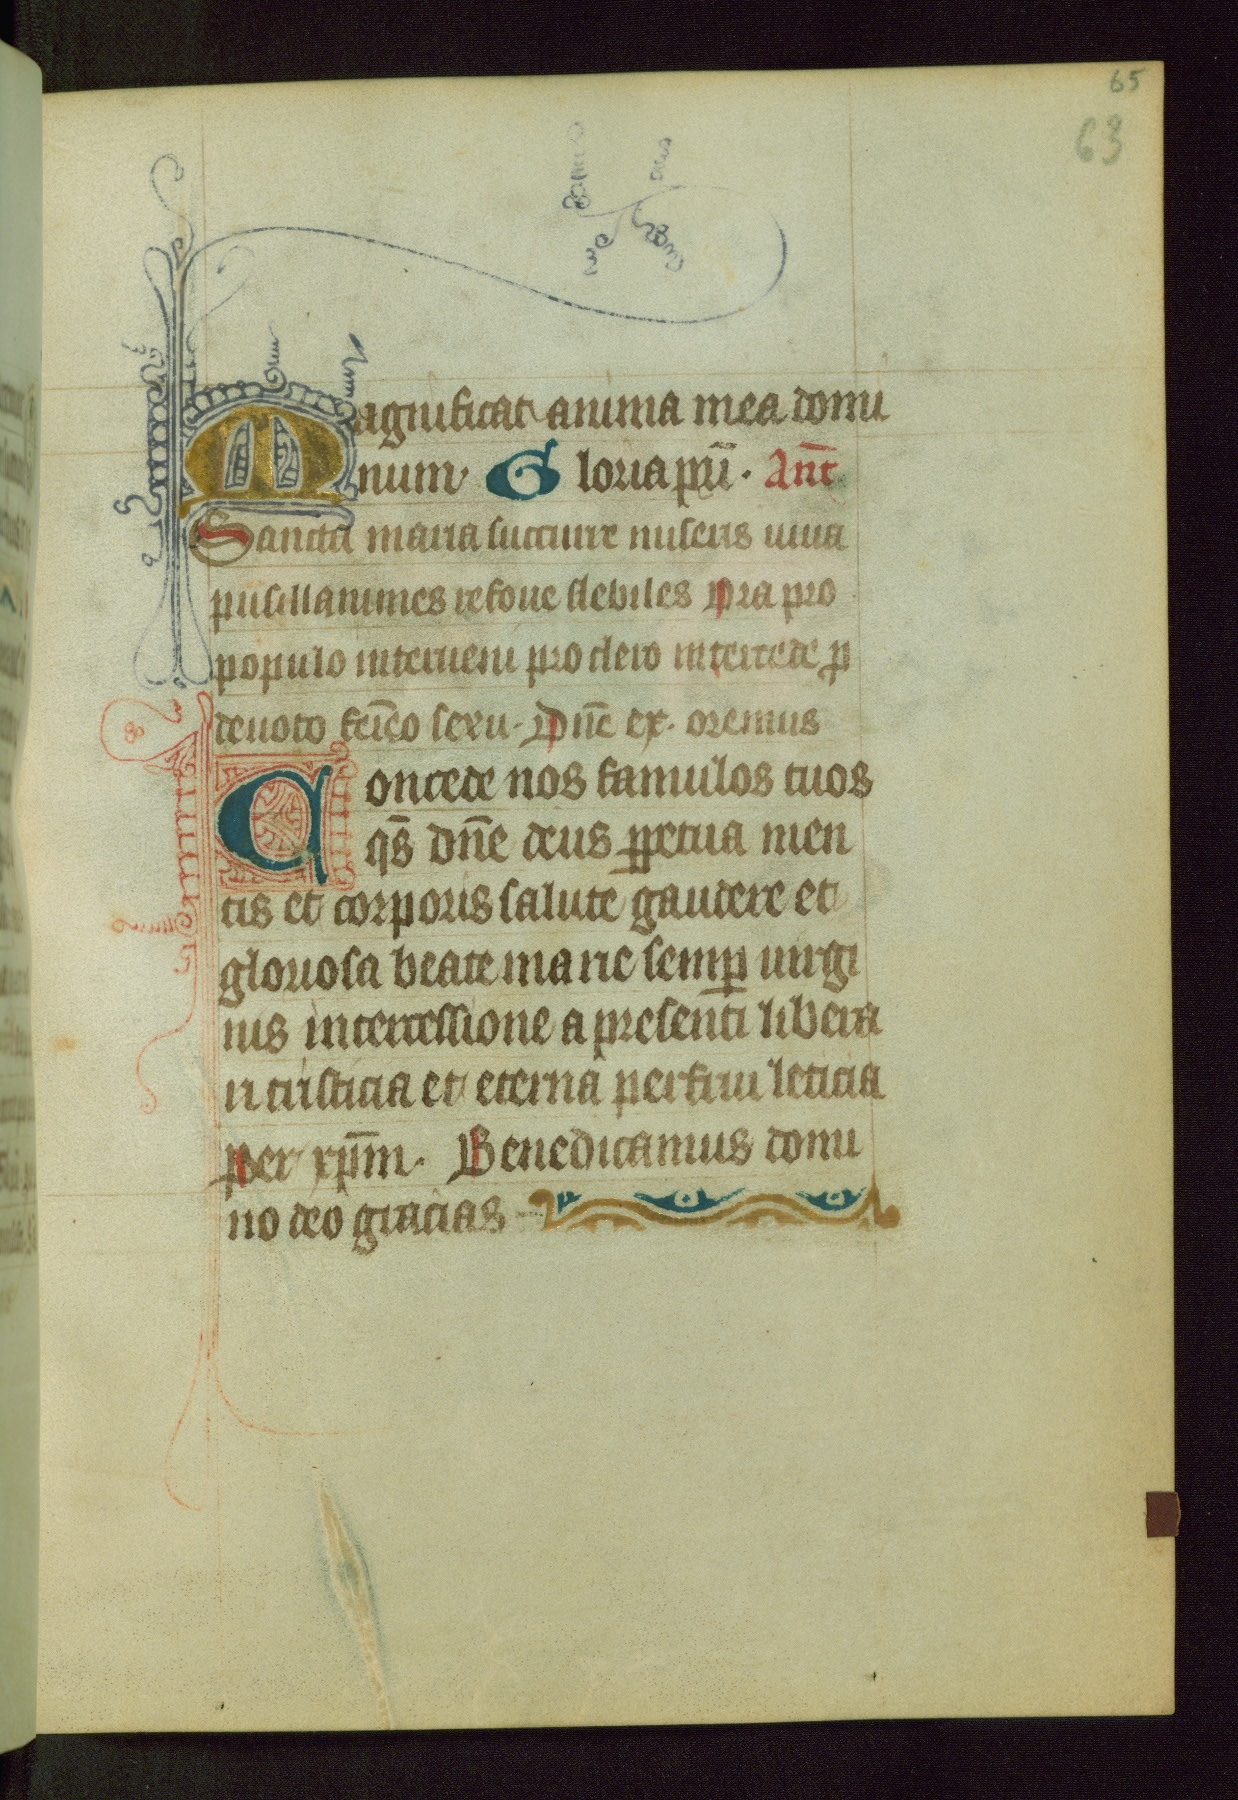 65
63
Magnificat anima mea domi
num. Gloria pr̄i. Ant̄
Sancta maria succurre miseris iuua
pusillanimes refoue flebiles Ora pro
populo interueni pro clero intercede p̄
deuoto femīeo sexu. Dn̄e ex. oremus
Concede nos famulos tuos
qs̄ dn̄e deus ꝑpetua men
tis et corporis salute gaudere et
gloriosa beate marie semꝑ uirgi
nis intercessione a presenti libera
ri tristicia et eterna perfrui leticia
per xp̄m. Benedicamus domi
no deo gracias